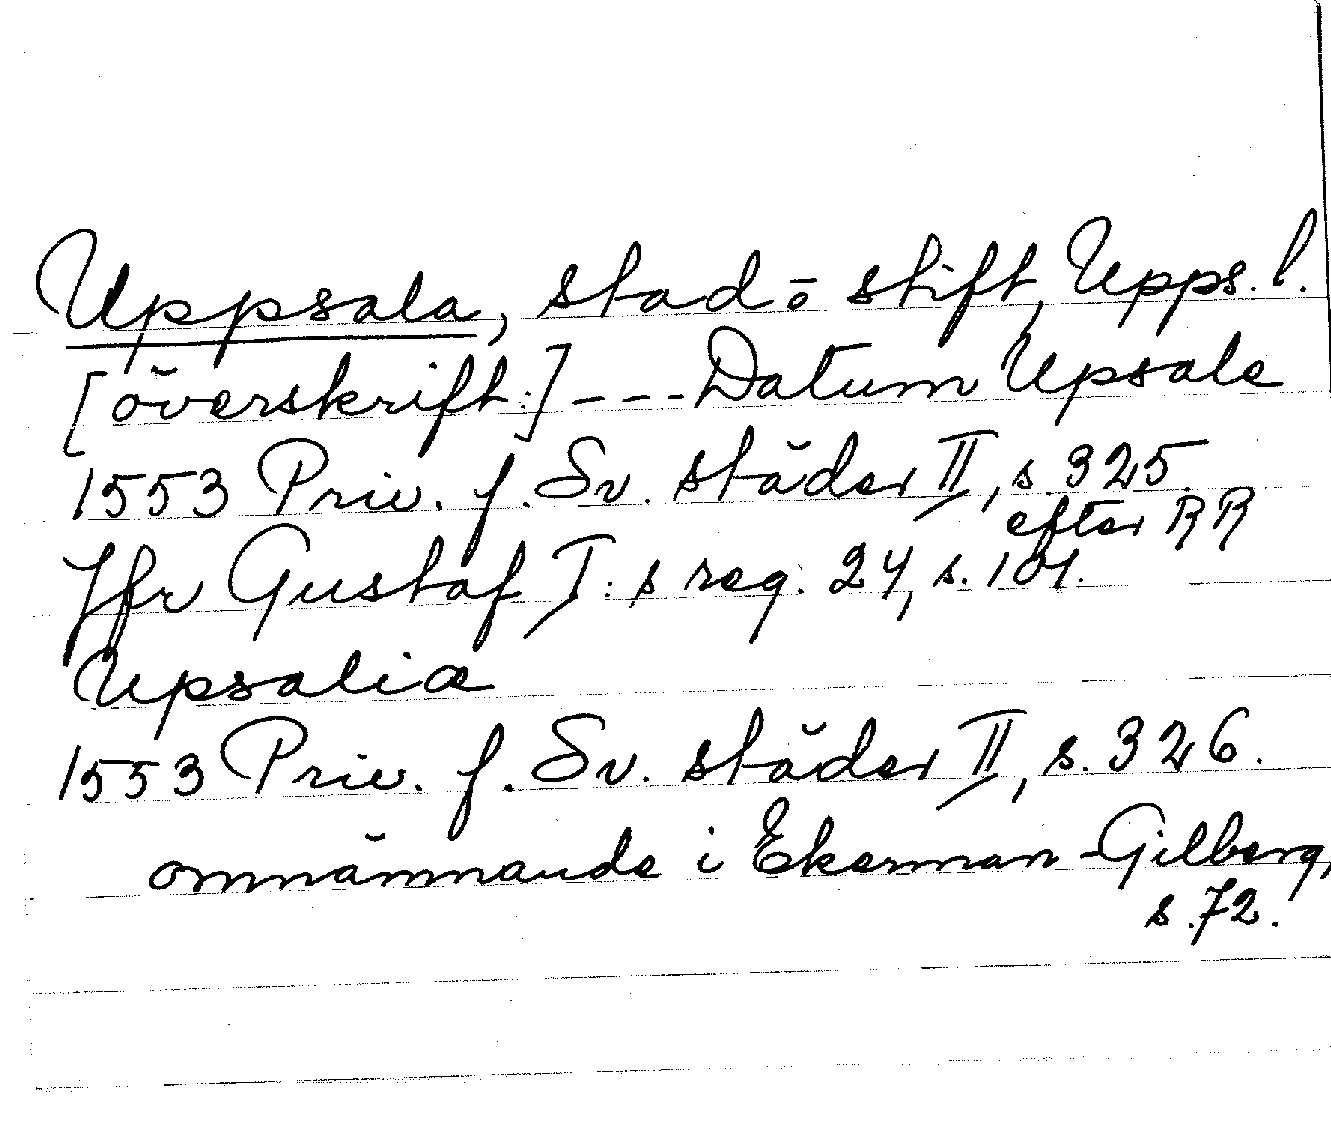 Uppsala, stad o stift, Upps. l.
[överskrift:] --- Datum Upsale
1553 Priv. f. Sv. städer II, s 325.
efter RR
Jfr Gustaf I:s reg. 24, s. 101.
Upsaliæ
1553 Priv. f. Sv. städer II, s. 326.
omnämnande i Ekerman-Gilberg,
s. 72.